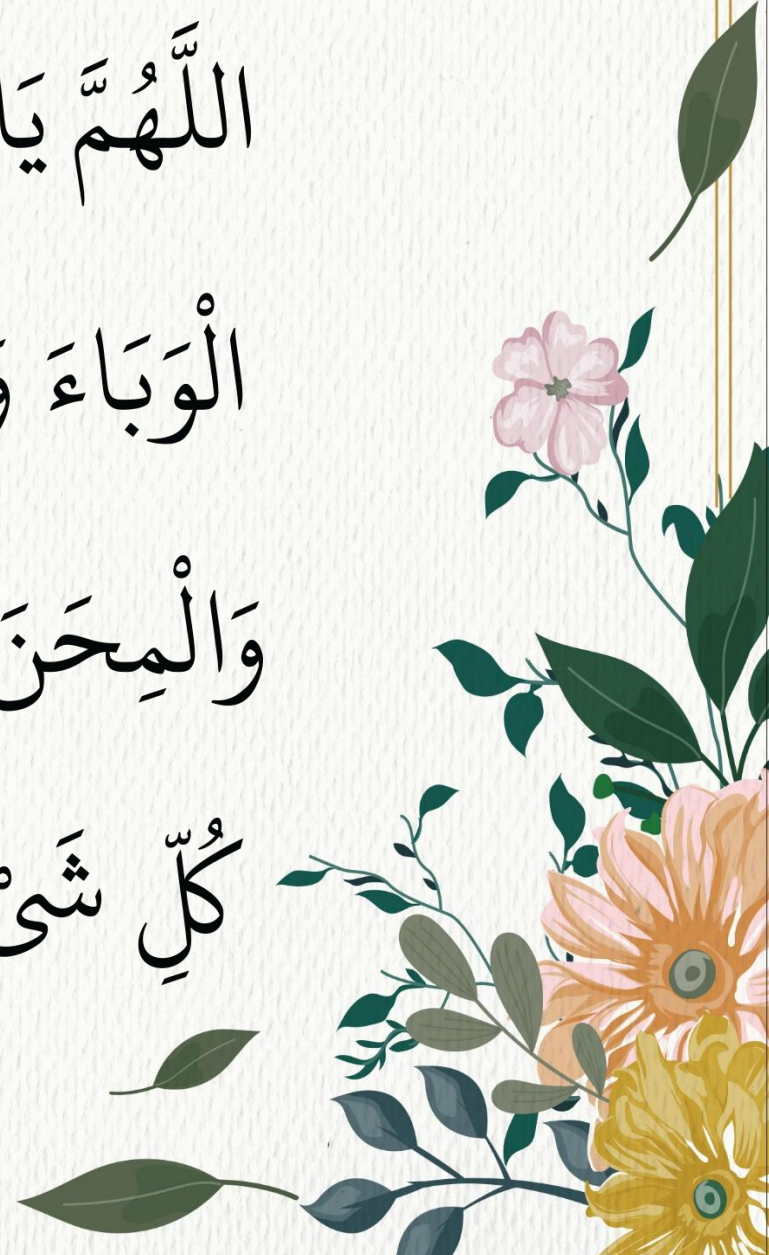 اللَّهُمَّ يَا
الْوَبَاءَ وَ
وَالْمِحَنَ
كُلِّ شَىْ